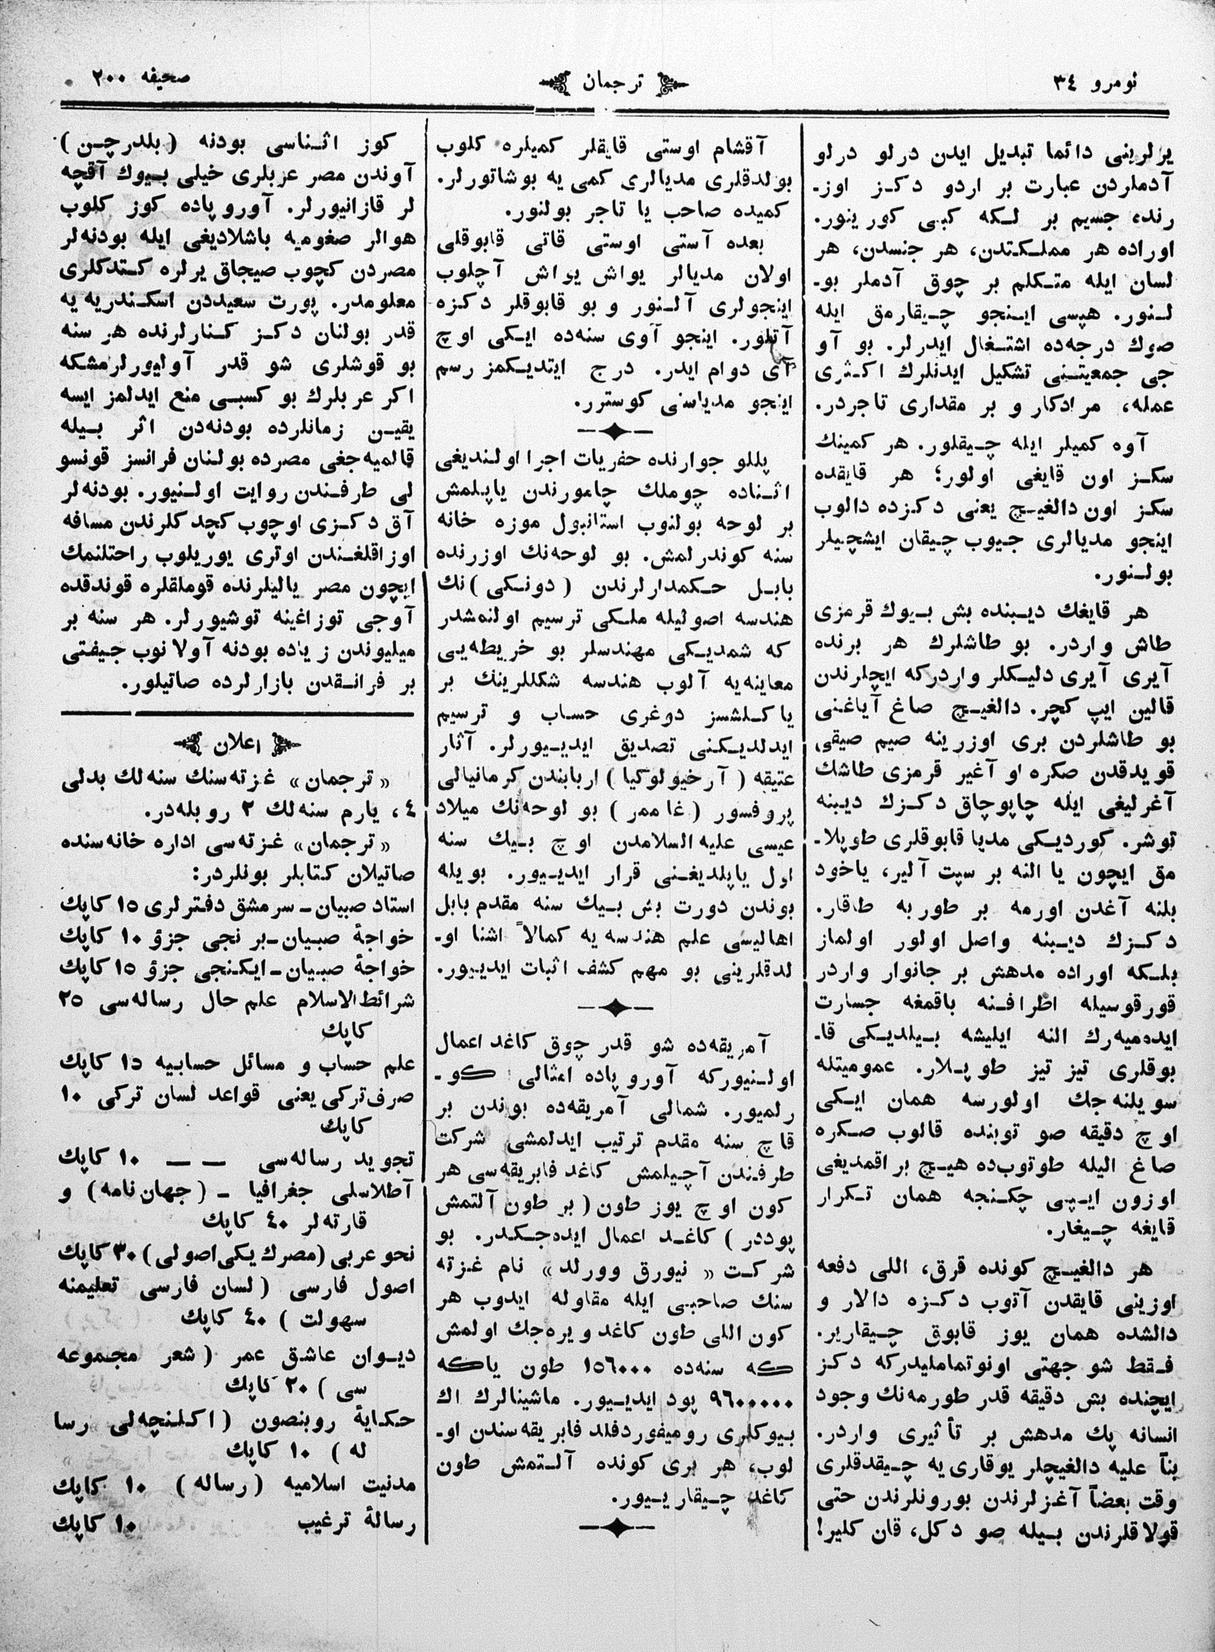 نومرو ٣٤
ترجمان
صحیفه ٢٠٠
یرلرینی دائما تبدیل ایدن درلو درلو
آدملردن عبارت بر اردو دكز اوز-
رنده جسیم بر لكه كبی كورینور.
اوراده هر مملكتدن، هر جنسدن، هر
لسان ایله متكلم بر چوق آدملر بو-
لنور. هپسی اینجو چیقارمق ایله
صوك درجه‌ده اشتغال ایدرلر. بو آو
جی جمعیتنی تشكیل ایدنلرك اكثری
عمله، مرادكار و بر مقداری تاجردر.
آوه كمیلر ایله چیقلور. هر كمینك
سكز اون قایغی اولور؛ هر قایقده
سكز اون دالغیچ یعنی دكزده دالوب
اینجو مدیالری جیوب چیقان ایشچیلر
بولنور.
هر قایغك دیبنده بش بیوك قرمزی
طاش واردر. بو طاشلرك هر برنده
آیری آیری دلیكلر واردركه ایچلرندن
قالین ایپ كچر. دالغیچ صاغ آیاغنی
بو طاشلردن بری اوزرینه صیم صیقی
قویدقدن صكره او آغیر قرمزی طاشك
آغرلیغی ایله چاپوچاق دكزك دیبنه
توشر. كوردیكی مدیا قابوقلری طوپلا-
مق ایچون یا النه بر سپت آلیر، یاخود
بلنه آغدن اورمه بر طوربه طاقار.
دكزك دیبنه واصل اولور اولماز
بلكه اوراده مدهش بر جانوار واردر
قورقوسیله اطرافنه باقمغه جسارت
ایده‌میه‌رك النه ایلیشه بیلدیكی قا-
بوقلری تیز تیز طوپلار. عمومیتله
سویلنه‌جك اولورسه همان ایكی
اوچ دقیقه صو توبنده قالوب صكره
صاغ الیله طوتوب‌ده هیچ براقمدیغی
اوزون ایپی چكنجه همان تكرار
قایغه چیغار.
هر دالغیچ كونده قرق، اللی دفعه
اوزینی قایقدن آتوب دكزه دالار و
دالشده همان یوز قابوق چیقاریر.
فقط شو جهتی اونوتماملیدركه دكز
ایچنده بش دقیقه قدر طورمه‌نك وجود
انسانه پك مدهش بر تأثیری واردر.
بنآ علیه دالغیچلر یوقاری‌یه چیقدقلری
وقت بعضاً آغزلرندن بورونلرندن حتی
قولاقلرندن بیله صو دكل، قان كلیر!
آقشام اوستی قایقلر كمیلره كلوب
بولدقلری مدیالری كمی یه بوشاتورلر.
كمیده صاحب یا تاجر بولنور.
بعده آستی اوستی قاتی قابوقلی
اولان مدیالر یواش یواش آچلوب
اینجولری آلنور و بو قابوقلر دكزه
آتلور. اینجو آوی سنه‌ده ایكی اوچ
آی دوام ایدر. درج ایتدیكمز رسم
اینجو مدیاسنی كوسترر.
پللو جوارنده حفریات اجرا اولندیغی
اثناده چوملك چامورندن یاپلمش
بر لوحه بولنوب استانبول موزه خانه
سنه كوندرلمش. بو لوحه‌نك اوزرنده
بابل حكمدارلرندن (دونكی)نك
هندسه اصولیله ملكی ترسیم اولنمشدر
كه شمدیكی مهندسلر بو خریطه‌یی
معاینه‌یه آلوب هندسه شكللرینك بر
یاكلشسز دوغری حساب و ترسیم
ایدلدیكنی تصدیق ایدیورلر. آثار
عتیقه (آرخیولوكیا) اربابندن كرمانیالی
پروفسور (غاممر) بو لوحه‌نك میلاد
عیسی علیه السلامدن اوچ بیك سنه
اول یاپلدیغنی قرار ایدیور. بویله
بوندن دورت بش بیك سنه مقدم بابل
اهالیسی علم هندسه یه كمالاً اشنا او-
لدقلرینی بو مهم كشف اثبات ایدیور.
آمریقه‌ده شو قدر چوق كاغد اعمال
اولنیوركه آوروپاده امثالی كو-
رلمیور. شمالی آمریقه‌ده بوندن بر
قاچ سنه مقدم ترتیب ایدلمشی شركت
طرفندن آچیلمش كاغد فابریقه‌سی هر
كون اوچ یوز طون (بر طون آلتمش
پوددر) كاغد اعمال ایده‌جكدر. بو
شركت «نیورق وورلد» نام غزته
سنك صاحبی ایله مقاوله ایدوب هر
كون اللی طون كاغد ویره‌جك اولمش
كه سنه‌ده ١٥٦٠٠٠ طون یاكه
٩٦٠٠٠٠٠ پود ایدیور. ماشینالرك اك
بیوكلری رومیفوردفلد فابریقه‌سندن او-
لوب، هر بری كونده آلتمش طون
كاغد چیقاریور.
كوز اثناسی بودنه (بلدرچین)
آوندن مصر عزبلری خیلی بیوك آقچه
لر قازانیورلر. آوروپاده كوز كلوب
هوالر صغومیه باشلادیغی ایله بودنه‌لر
مصردن كچوب صیجاق یرلره كتدكلری
معلومدر. پورت سعیددن اسكندریه یه
قدر بولنان دكز كنارلرنده هر سنه
بو قوشلری شو قدر آولیورلرمشكه
اكر عربلرك بو كسبی منع ایدلمز ایسه
یقین زمانلرده بودنه‌دن اثر بیله
قالمیه‌جغی مصرده بولنان فرانسز قونسو
لی طرفندن روایت اولنیور. بودنه‌لر
آق دكزی اوچوب كچدكلرندن مسافه
اوزاقلغندن اوتری یوریلوب راحتلنمك
ایچون مصر یالیلرنده قوملقلره قوندقده
آوجی توزاغینه توشیورلر. هر سنه بر
میلیوندن زیاده بودنه آولانوب جیفتی
بر فرانقدن بازارلرده صاتیلور.
اعلان
«ترجمان» غزته‌سنك سنه‌لك بدلی
٤، یارم سنه‌لك ٢ روبله‌در.
«ترجمان» غزته‌سی اداره خانه‌سنده
صاتیلان كتابلر بونلردر:
استاد صبیان – سرمشق دفترلری ١٥ كاپك
خواجهٔ صبیان – برنجی جزؤ ١٠ كاپك
خواجهٔ صبیان – ایكنجی جزؤ ١٥ كاپك
شرائط‌الاسلام علم حال رساله‌سی ٢٥
كاپك
علم حساب و مسائل حسابیه ١٥ كاپك
صرف‌تركی یعنی قواعد لسان تركی ١٠
كاپك
تجوید رساله‌سی — — ١٠ كاپك
آطلاسلی جغرافیا – (جهان‌نامه) و
قارته‌لر ٤٠ كاپك
نحو عربی (مصرك یكی‌اصولی) ٣٠ كاپك
اصول فارسی (لسان فارسی تعلیمنه
سهولت) ٤٠ كاپك
دیوان عاشق عمر (شعر مجموعه
سی) ٢٠ كاپك
حكایهٔ روبنصون (اكلنچه‌لی رسا
له) ١٠ كاپك
مدنیت اسلامیه (رساله) ١٠ كاپك
رسالهٔ ترغیب ١٠ كاپك